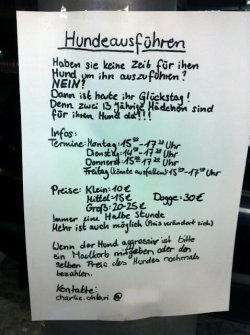 Hundeausführen
Haben sie keine Zeit für ihen
Hund um ihn auszuführen?
NEIN?
Dann ist heute ihr Glückstag!
Denn zwei 13 jährige Mädchen sind
für ihnen Hund da!!!
Infos:
Termine: Montag: 15 - 17 Uhr
Dienstag: 14 - 17 Uhr
Donnerst: 15 - 17 Uhr
Freitag (könnte ausfallen): 15 - 17 Uhr
Preise: Klein: 10€
Mittel: 15€ Dogge: 30€
Groß: 20-25€
Immer eine Halbe Stunde
Mehr ist auch möglich (Preis verändert sich)
Wenn der Hund aggressiv ist bitte
ein Maulkorb mitgeben oder den
selben Preis des Hundes nochmals
bezahlen.
Kontakte:
charlie.ohlari @